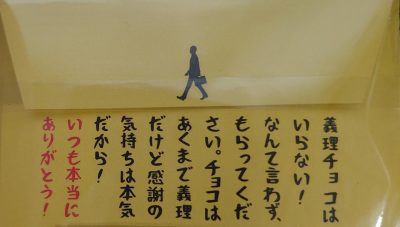 義理チョコは
いらない！
なんて言わず、
もらってくだ
さい。チョコは
あくまで義理
だけど感謝の
気持ちは本気
だから！
いつも本当に
ありがとう！